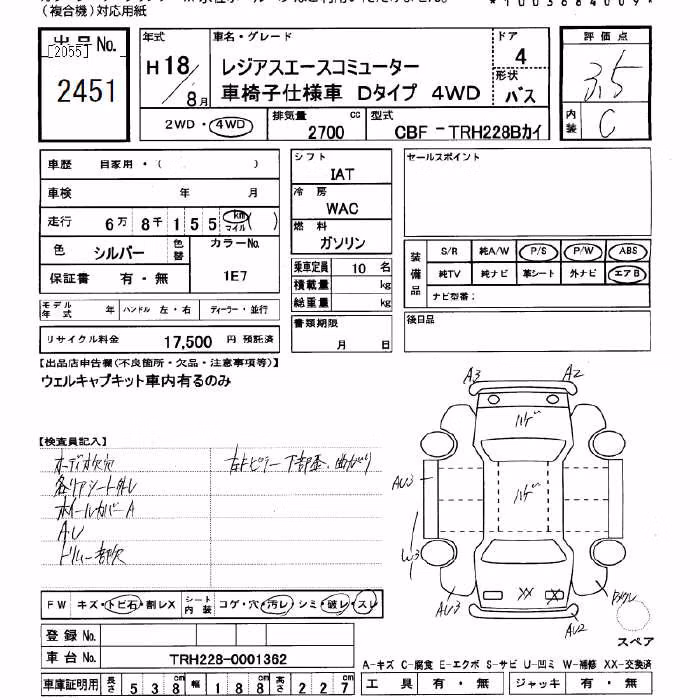 (複合機)対応用紙
*1003684009*
出品No.
[2055]
2451
年式
H18/8月
車名・グレード
レジアスエースコミューター
車椅子仕様車 Dタイプ 4WD
ドア
4
形状
バス
評価点
3.5
内装
C
2WD・4WD
排気量
2700 cc
型式
CBF-TRH228Bカイ
車歴 自家用・( )
車検 年 月
走行 6万8千155 km マイル ( )
色 シルバー
色替
カラーNo.
1E7
保証書 有・無
モデル年式 年
ハンドル 左・右
ディーラー・並行
リサイクル料金 17,500 円 預託済
シフト
IAT
冷房
WAC
燃料
ガソリン
乗車定員 10 名
積載量 kg
総重量 kg
書類期限
月 日
セールスポイント
装備品
S/R 純A/W P/S P/W ABS
純TV 純ナビ 革シート 外ナビ エアB
ナビ型番:
後日品
【出品店申告欄(不良箇所・欠品・注意事項等)】
ウェルキャブキット車内有るのみ
【検査員記入】
ボーディ欠穴
各リアシート外し
ホイールカバーA
A.U
A3
A2
ハゲ
ハゲ
AU3
W3
AU3
XX X
AU2
スペア
FW キズ・トビ石・割レX
シート内装 コゲ・穴・汚レ・シミ・破レ・スレ
登録No.
車台No. TRH228-0001362
車庫証明用 長さ 538 cm 幅 188 cm 高さ 227 cm
A-キズ C-腐食 E-エクボ S-サビ U-凹ミ W-補修 XX-交換済
工具 有・無 ジャッキ 有・無